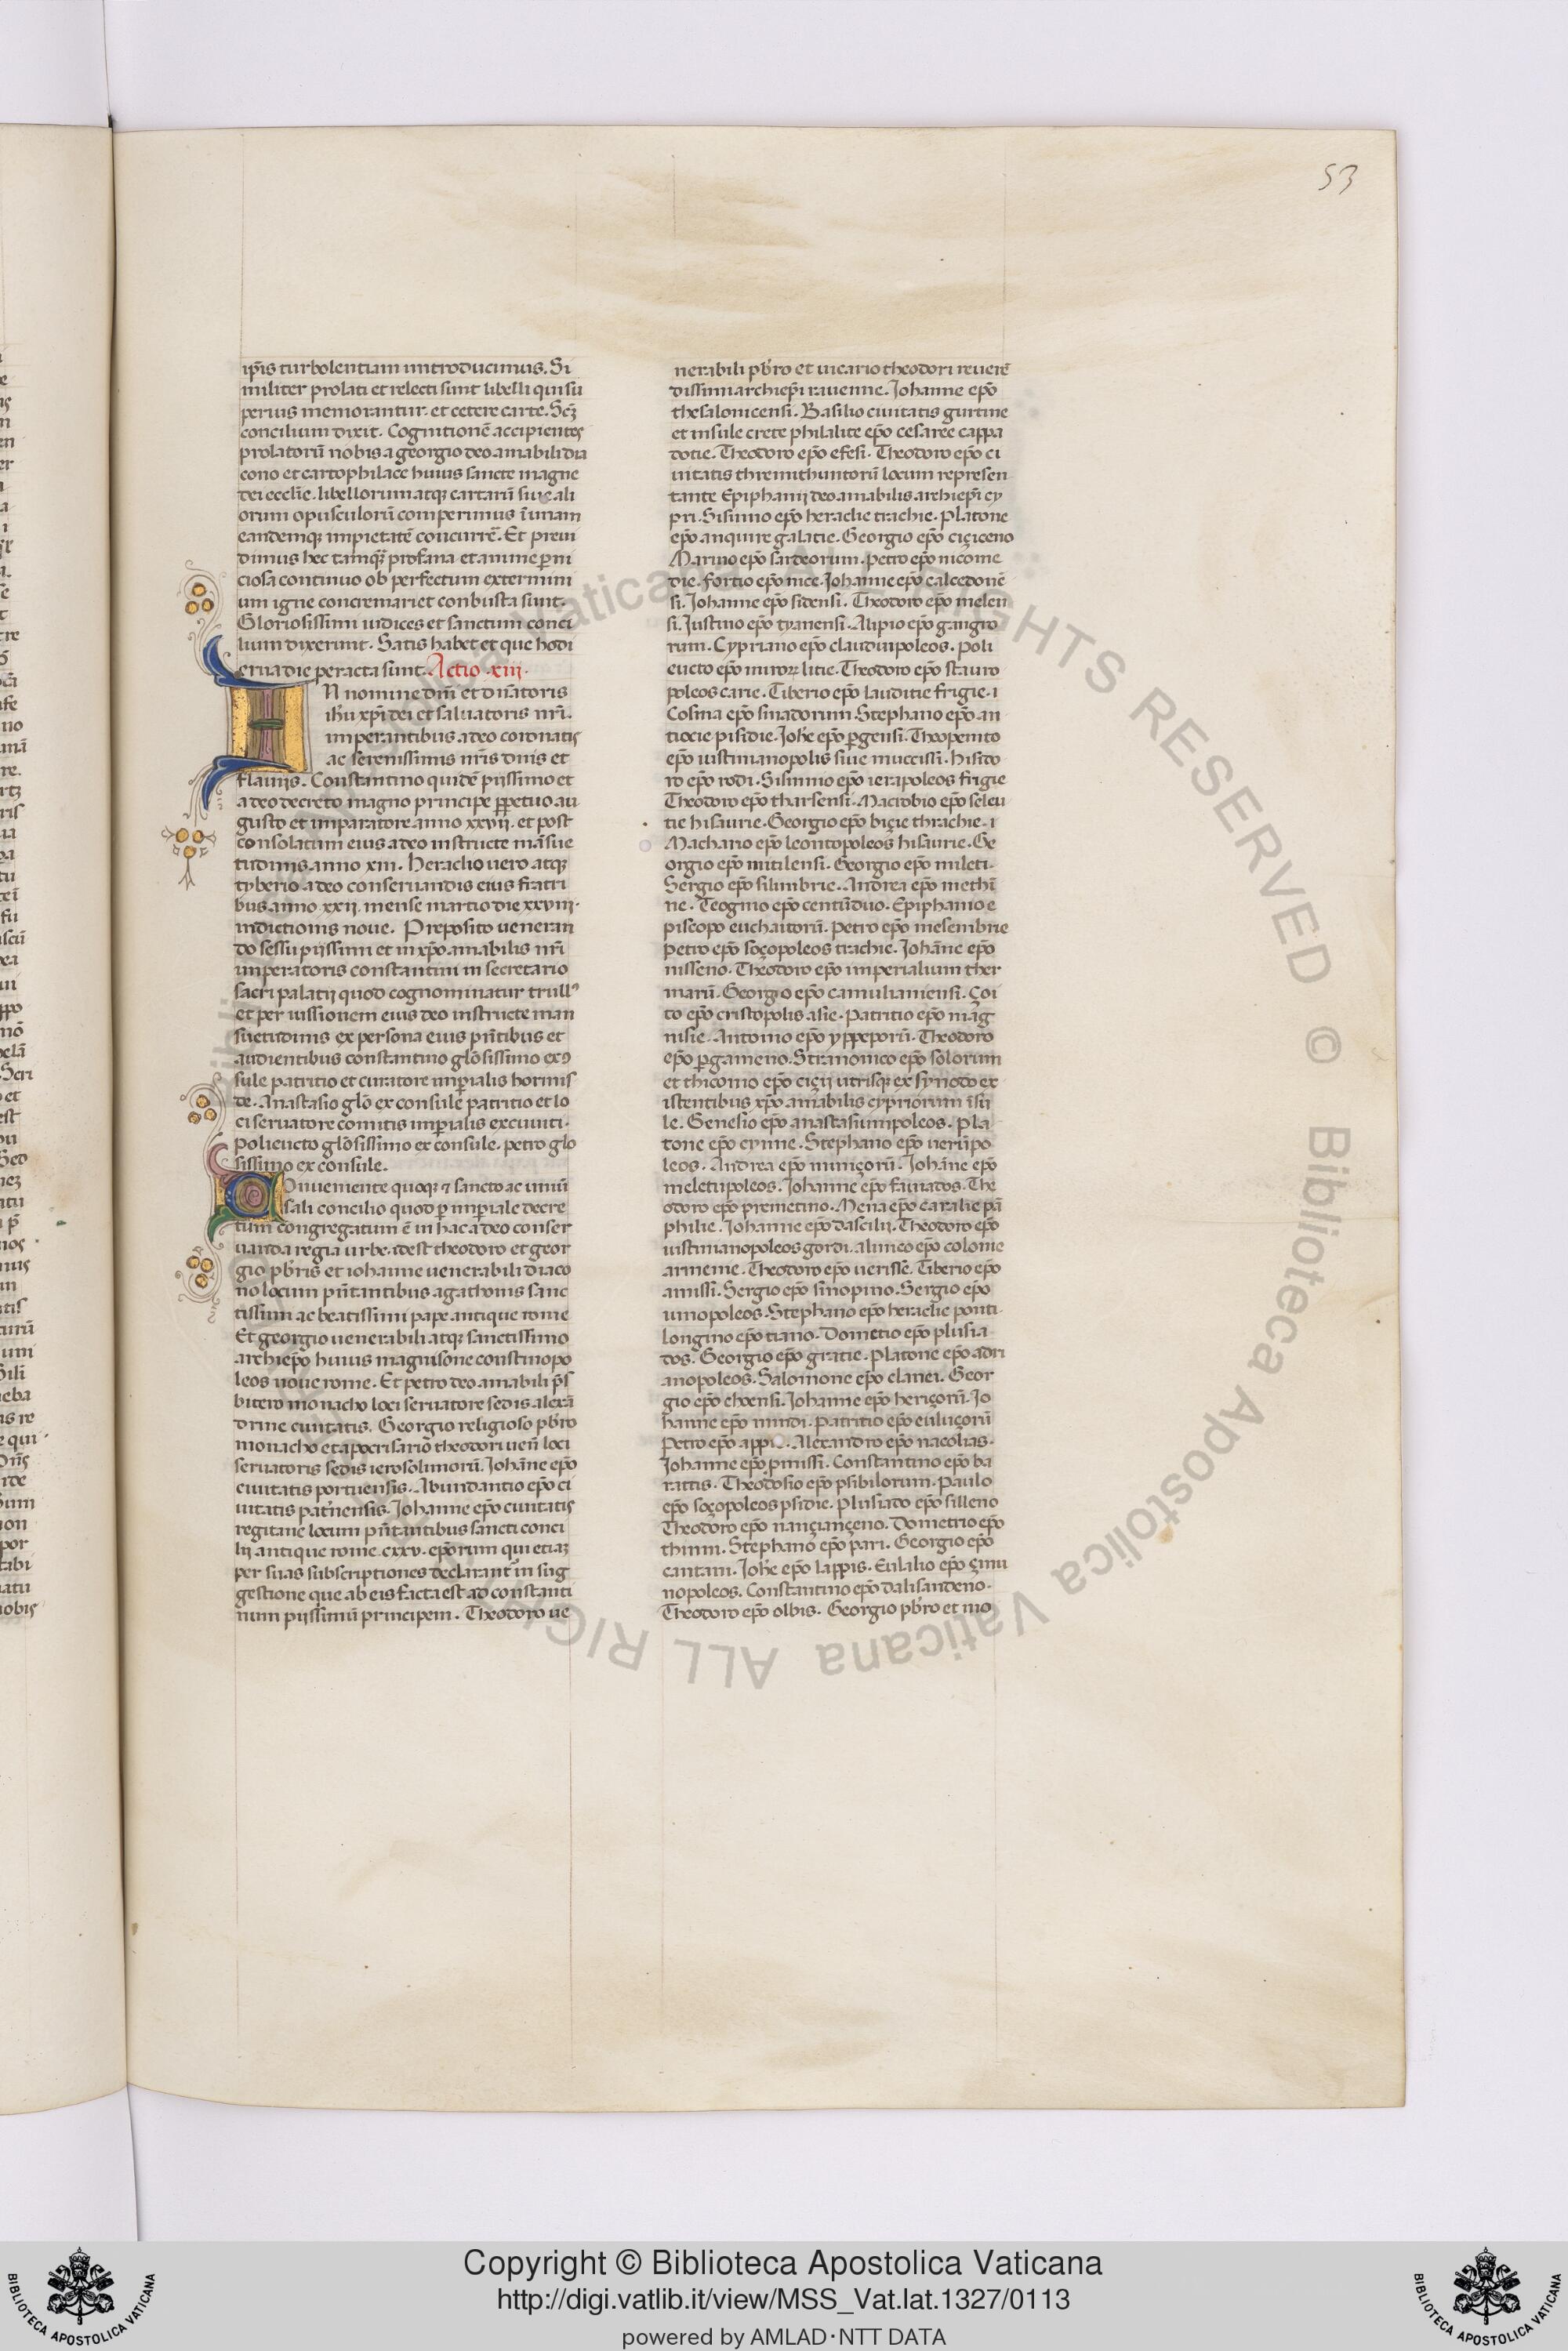 53
ip̄is turbolentiam introducimus. Si
militer prolati et relecti sunt libelli qui su
perius memorantur. et cetere carte. Scꝫ
concilium dixit. Cognitionē accipientes
prolatorū nobis a georgio deo amabili dia
cono et cartophilace huius sancte magne
dei eccl̄ie. libellorum atqꝫ cartarū siue ali
orum opusculorū comperimus ī unam
eandemqꝫ impietatē concurrē. Et previ
dimus hec tamqꝫ profana et anime ꝑni
ciosa continuo ob perfectum extermini
um igne concremari et conbusta sunt.
Gloriosissimi iudices et sanctum conci
lium dixerunt. Satis habet et que hodi
erna die peracta sunt. Actio .xiij.
IN nomine dn̄i et dn̄atoris
ih̄u xp̄i dei et saluatoris nr̄i.
imperantibus a deo coronatis
ac serenissimis nr̄is dn̄is et
flauijs. Constantino quidē piissimo et
a deo decreto magno principe ꝑpetuo au
gusto et imparatore anno xxvij. et post
consolatum eius a deo instructe māsue
tudinis anno xiii. heraclio uero atqꝫ
tyberio a deo conseruandis eius fratri
bus anno xxij. mense martio die xxviij.
indictionis noue. Preposito ueneran
do sessu piissimi et in xp̄o amabilis nr̄i
imperatoris constantini in secretario
sacri palatij quod cognominatur trullꝰ
et per iussionem eius deo instructe man
suetudinis ex persona eius pn̄tibus et
audientibus constantino glōsissimo exꝯ
sule patritio et curatore imꝑialis hormis
de. Anastasio glō ex consule patritio et lo
ci seruatore comitis imꝑialis excuuiti.
Polieucto glōsissimo ex consule. petro glo
sissimo ex consule.
Conueniente quoqꝫ et sancto ac uniuū
sali concilio quod ꝑ imꝑiale decre
tum congregatum ē in hac a deo conser
uanda regia urbe. idest theodoro et geor
gio pb̄ris et iohanne uenerabili diaco
no locum pn̄tantibus agathonis sanc
tissimi ac beatissimi pape antique rome
Et georgio uenerabili atqꝫ sanctissimo
archiep̄o huius magnisone constinopo
leos noue rome. Et petro deo amabili p̄s
bitero monacho loci seruatore sedis alexā
drine ciuitatis. Georgio religioso pb̄ro
monacho et apocrisario theodori uen̄ loci
seruatoris sedis ierosolimorū. Johāne ep̄o
ciuitatis portuensis. Abundantio ep̄o ci
uitatis pat̄nensis. Johanne ep̄o ciuitatis
regitane locum pn̄tantibus sancti conci
lij antique rome cxxv. ep̄orum qui etiaꝫ
per suas subscriptiones declarant̄ in sug
gestione que ab eis facta est ad constanti
num piissimū principem. Theodoro ue
nerabili pb̄ro et uicario theodori reuerē
dissimi archiep̄i rauenne. Johanne ep̄o
thesalonicensi. Basilio ciuitatis gurtine
et insule crete philalite ep̄o cesaree cappa
docie. Theodoro ep̄o efesi. Theodoro ep̄o ci
uitatis thremithuntorū locum represen
tante Epiphanij deo amabilis archiep̄i cy
pri. Sisinno ep̄o heraclie trachie. Platone
ep̄o anquire galatie. Georgio ep̄o ciçiceno
Marino ep̄o sardeorum. petro ep̄o nicome
die. fortio ep̄o nice. Johanne ep̄o calcedonē
si. Johanne ep̄o sidensi. Theodoro ep̄o melen
si. Justino ep̄o tyanensi. Alipio ep̄o gangro
rum. Cypriano ep̄o claudiupoleos. Poli
eucto ep̄o mirorꝫ litie. Theodoro ep̄o stauro
poleos carie. Tiberio ep̄o lauditie frigie. i
Cosma ep̄o sinadorum. Stephano ep̄o an
tiocie pisidie. Joħe ep̄o ꝑgensi. Theopento
ep̄o iustinianopolis siue muccissi. hisido
ro ep̄o rodi. Sisinnio ep̄o ierapoleos frigie
Theodoro ep̄o tharsensi. Macrobio ep̄o seleu
tie hisaurie. Georgio ep̄o biçie thrachie. i
Machario ep̄o leontopoleos hisaurie. Ge
orgio ep̄o mitilensi. Georgio ep̄o mileti.
Sergio ep̄o silimbrie. Andrea ep̄o methī
ne. Teognio ep̄o centūduo. Epiphanio e
piscopo euchaitorū. Petro ep̄o mesembrie
petro ep̄o soçopoleos trachie. Johāne ep̄o
nisseno. Theodoro ep̄o imperialium ther
marū. Georgio ep̄o camulianensi. çoi
to ep̄o cristopolis asie. Patritio ep̄o māg
nisie. Antonio ep̄o yppeporū. Theodoro
ep̄o ꝑgameno. Stranonico ep̄o solorum
et thicomo ep̄o ciçij utrisqꝫ ex synodo ex
istentibus xp̄o amabilis cypriorum īsu
le. Genesio ep̄o anastasiumpoleos. Pla
tone ep̄o cynne. Stephano ep̄o uerūpo
leos. Andrea ep̄o miniçorū. Johāne ep̄o
meletupoleos. Johanne ep̄o fauiados. The
odoro ep̄o prenetino. Mena ep̄o caralie pā
philie. Johanne ep̄o dascilij. Theodoro ep̄o
iustinianopoleos gordi. alimeo ep̄o colonie
armenie. Theodoro ep̄o uerissē. Tiberio ep̄o
amissi. Sergio ep̄o sinopino. Sergio ep̄o
unopoleos. Stephano ep̄o heraclie ponti.
longino ep̄o tiano. Dometio ep̄o plusia
dos. Georgio ep̄o gratie. Platone ep̄o adri
anopoleos. Salomone ep̄o clanei. Geor
gio ep̄o choensi. Johanne ep̄o heriçorū. Jo
hanne ep̄o mindi. Patritio ep̄o euluçorū
Petro ep̄o appi Alexandro ep̄o nacolias.
Johanne ep̄o pinissi. Constantino ep̄o ba
rattis. Theodosio ep̄o psibilorum. Paulo
ep̄o soçopoleos psidie. Plusiado ep̄o silleno
Theodoro ep̄o nançiançeno. Dometrio ep̄o
thinni. Stephano ep̄o pari. Georgio ep̄o
cantani. Joħe ep̄o lappis. Eulalio ep̄o çinu
nopoleos. Constantino ep̄o dalisandeno.
Theodoro ep̄o olbis. Georgio pb̄ro et mo
Copyright © Biblioteca Apostolica Vaticana
http://digi.vatlib.it/view/MSS_Vat.lat.1327/0113
powered by AMLAD·NTT DATA